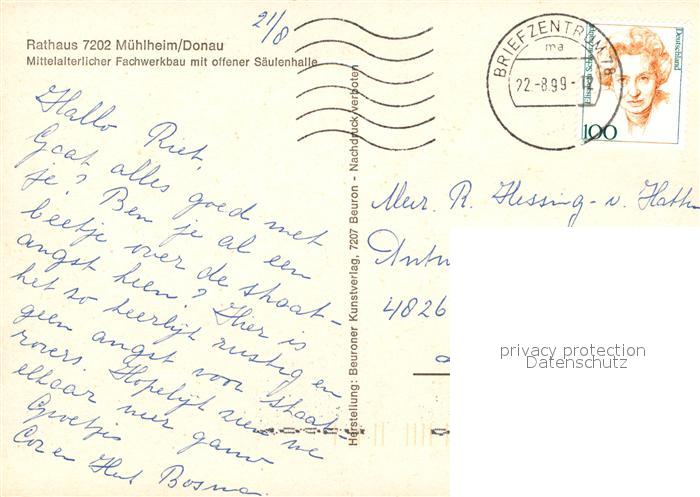 21/8
Rathaus 7202 Mühlheim/Donau
Mittelalterlicher Fachwerkbau mit offener Säulenhalle
Hallo Riet,
Gaat alles goed met
je? Ben je al een
beetje over de straat-
angst heen? Hier is
het zo heerlijk rustig en
geen angst voor straat-
rovers. Hopelijk zien we
elkaar weer gauw
Groetjes
Cor en Henk Bosma.
Herstellung: Beuroner Kunstverlag, 7207 Beuron - Nachdruck verboten
BRIEFZENTRUM 78
ma
22.-8.99-12
Deutschland
100
Mevr. R. Hessing - v. Hatt
Antw
4826
privacy protection
Datenschutz